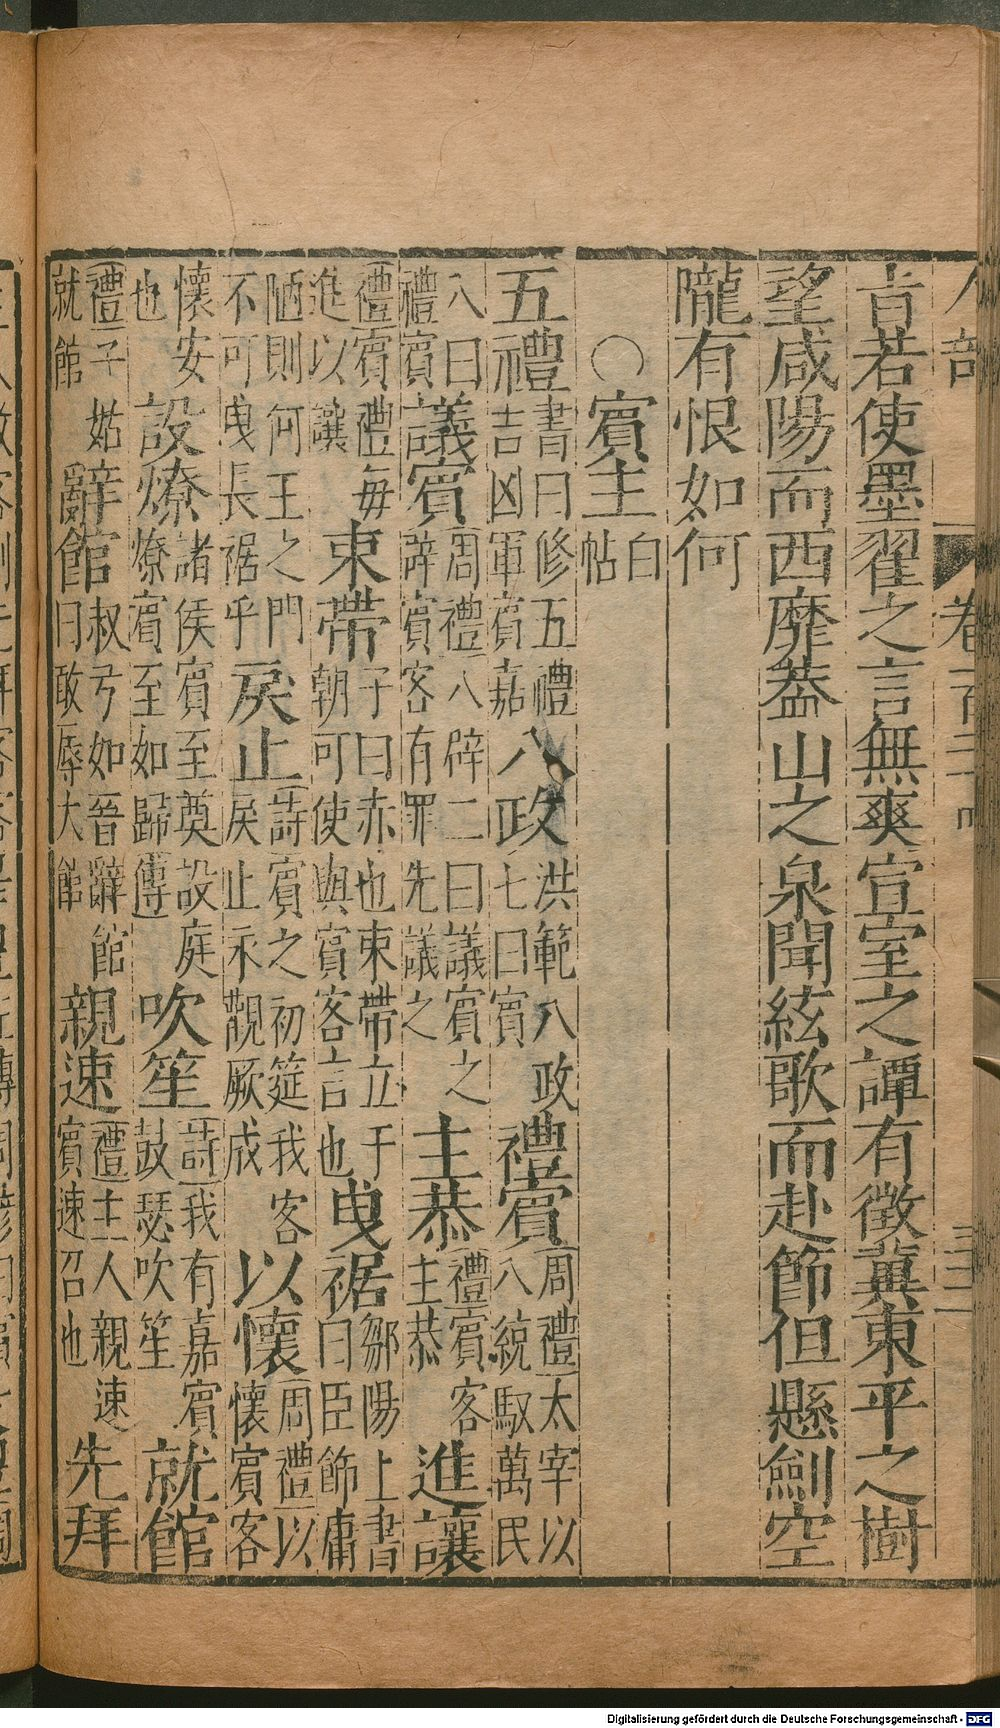 人部 卷一百二十
㫖若使墨翟之言無爽宣室之譚有徵冀東平之樹
望咸陽而西靡葢山之泉聞絃歌而赴節但懸劍空
隴有恨如何
○賓主 白帖
五禮書曰修五禮吉凶軍賓嘉八政洪範八政七曰賓禮賓周禮太宰以八統馭萬民
八曰禮賓議賓周禮八辟二曰議賓之辟賓客有罪先議之主恭禮賓客主恭進讓
禮賓禮每進以讓束帶子曰赤也束帶立于朝可使與賓客言也曵裾鄒陽上書曰臣飾庸
陋則何王之門不可曵長裾乎戾止詩賓之初筵我客戾止永觀厥成以懷周禮以懷賓客
懷安也設燎諸侯賓至奠設庭燎賓至如歸傳吹笙詩我有嘉賓鼓瑟吹笙就館
禮子姑就館辭館叔弓如晉辭館曰敢辱大館親速禮主人親速賓速召也先拜
Digitalisierung gefördert durch die Deutsche Forschungsgemeinschaft - DFG